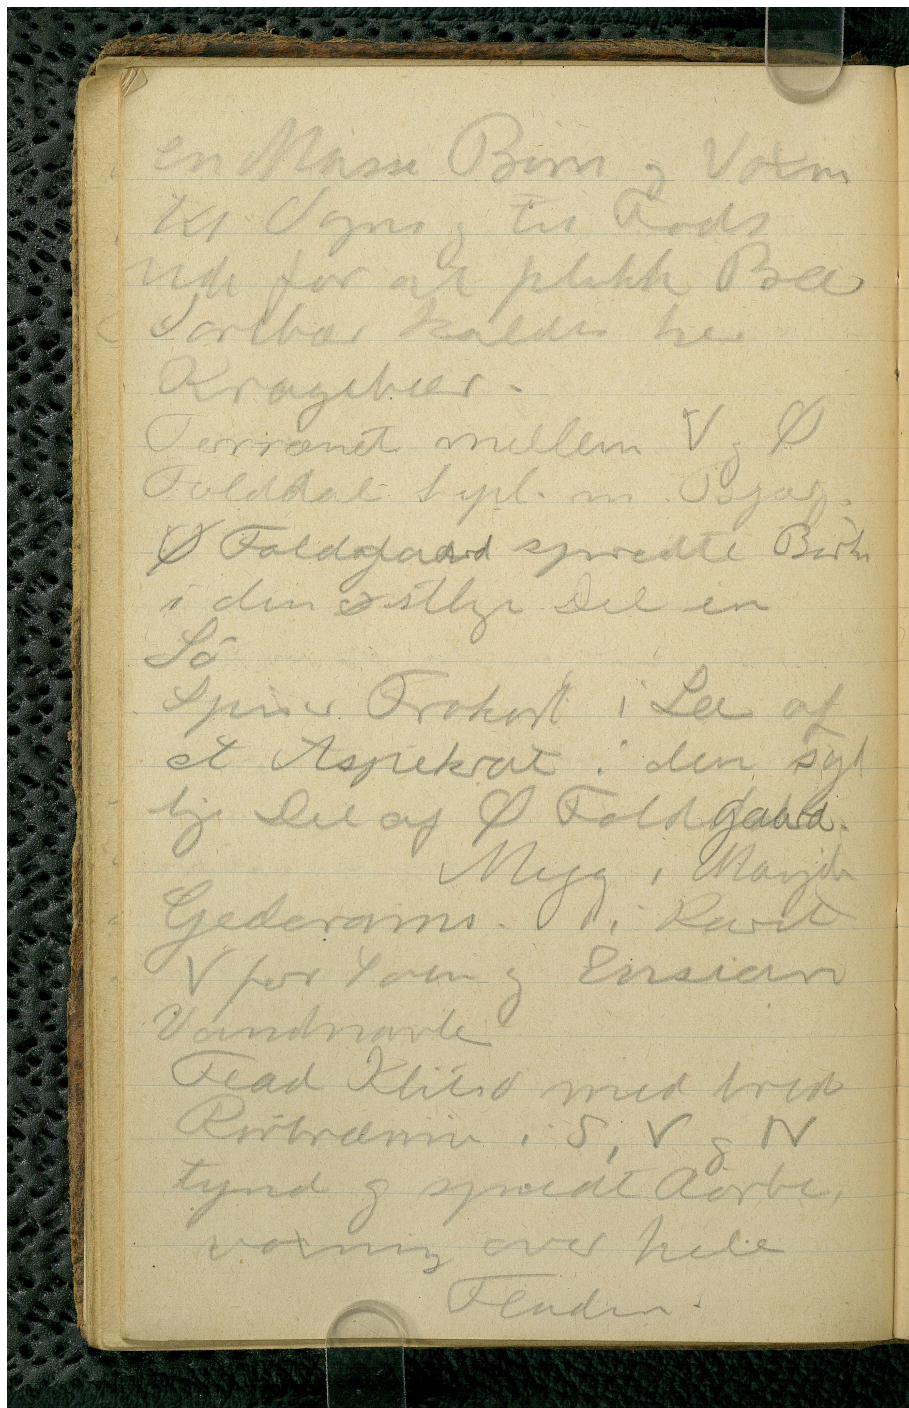 en Masse Børn og Voxne
til Vogns og til Fods
ude for at plukke Bær
Sortbær kaldes her
Kragebær.
Terrænet mellem V og Ø
Folddal m.
Ø Foldgaard spredte Birke
i den østlige Del en
Sö
Spiser Frokost i Læ af
et Aspekrat i den syd
lige Del af Ø Foldgaard.
Mygg i Mængde
Gederams. i Krat
V for Søen og Ensian
Vandnavle
Flad Klitsø med bred
Rørbræmme i S, V og N
tynd og spredt Rørbe,
voxning over hele
Fladen.